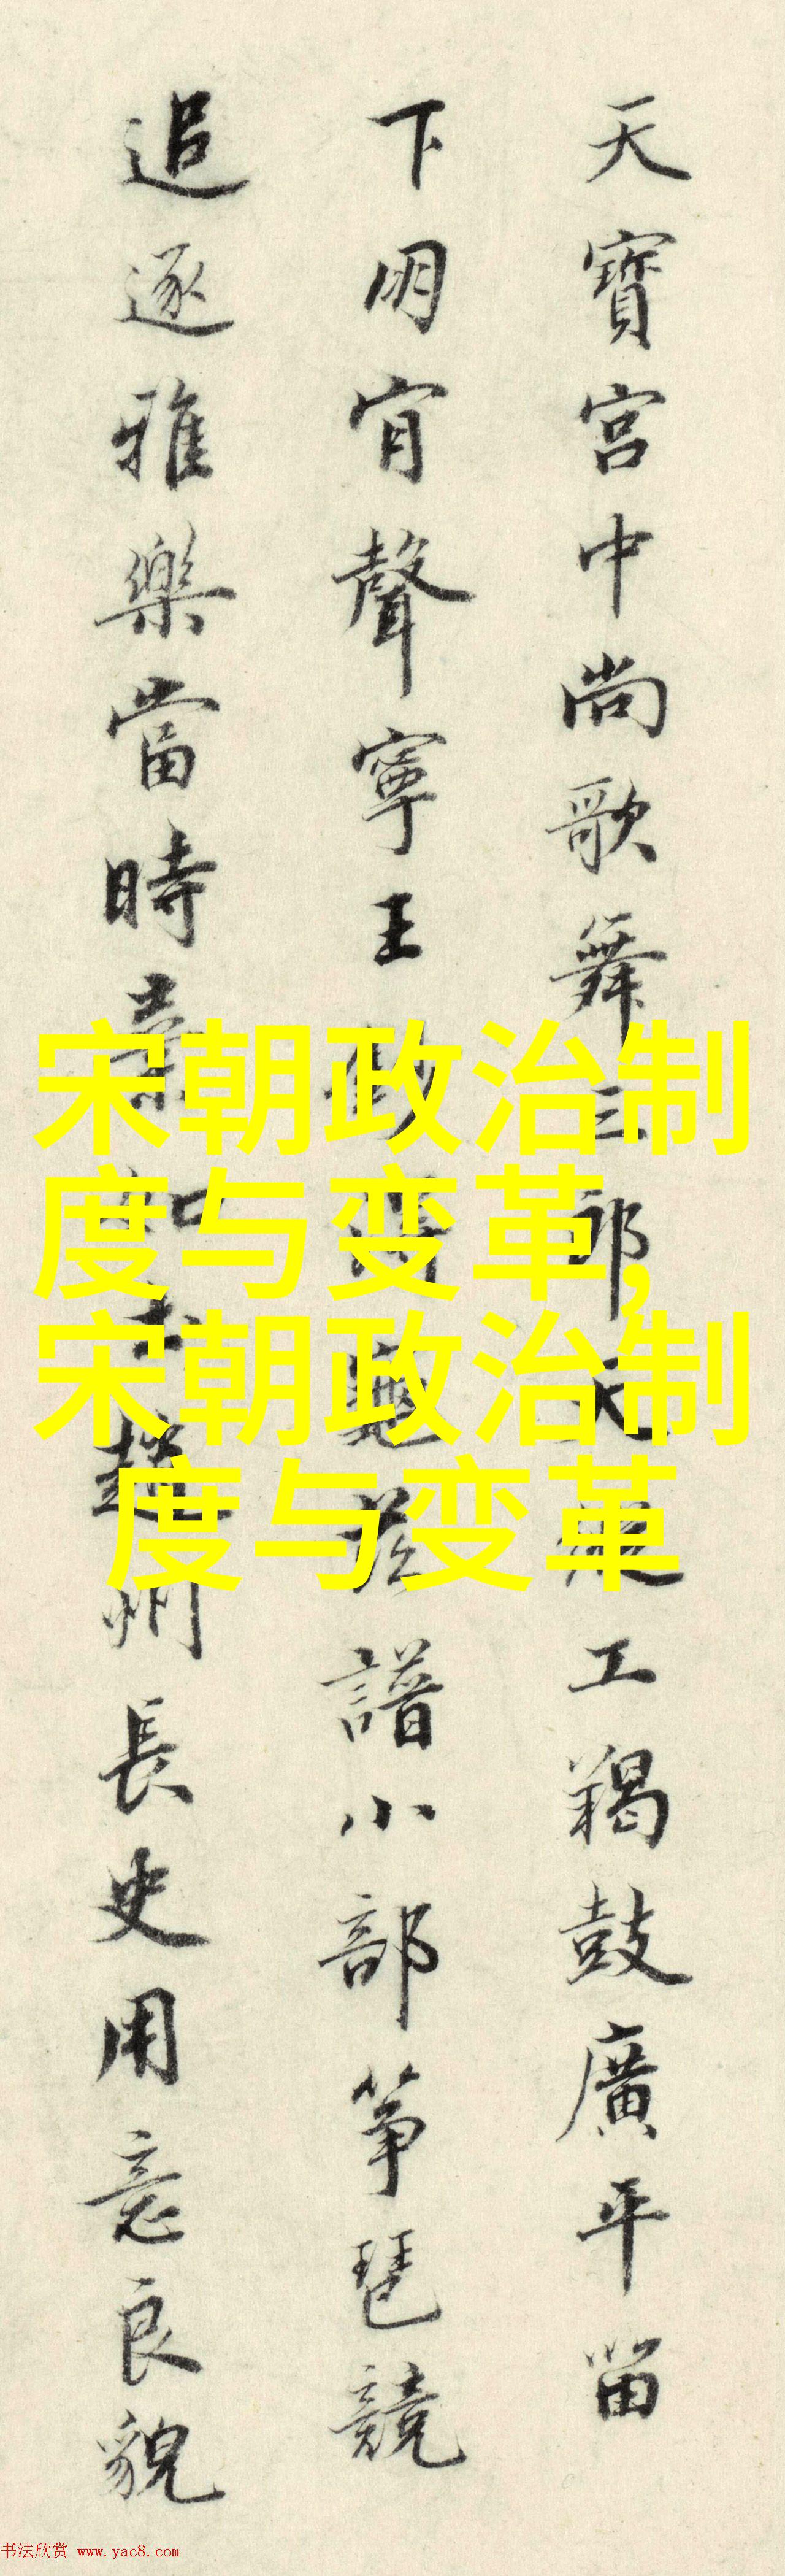 天寶宮中尚歌舞三郎天工羯鼓廣平留
下明宵聲寧王譜小部箏琶競
追逐雅樂當時州長史用意良貌
宋朝政治制
度与变革,
宋朝政治制
度与变革
书法欣赏 www.yac8.com